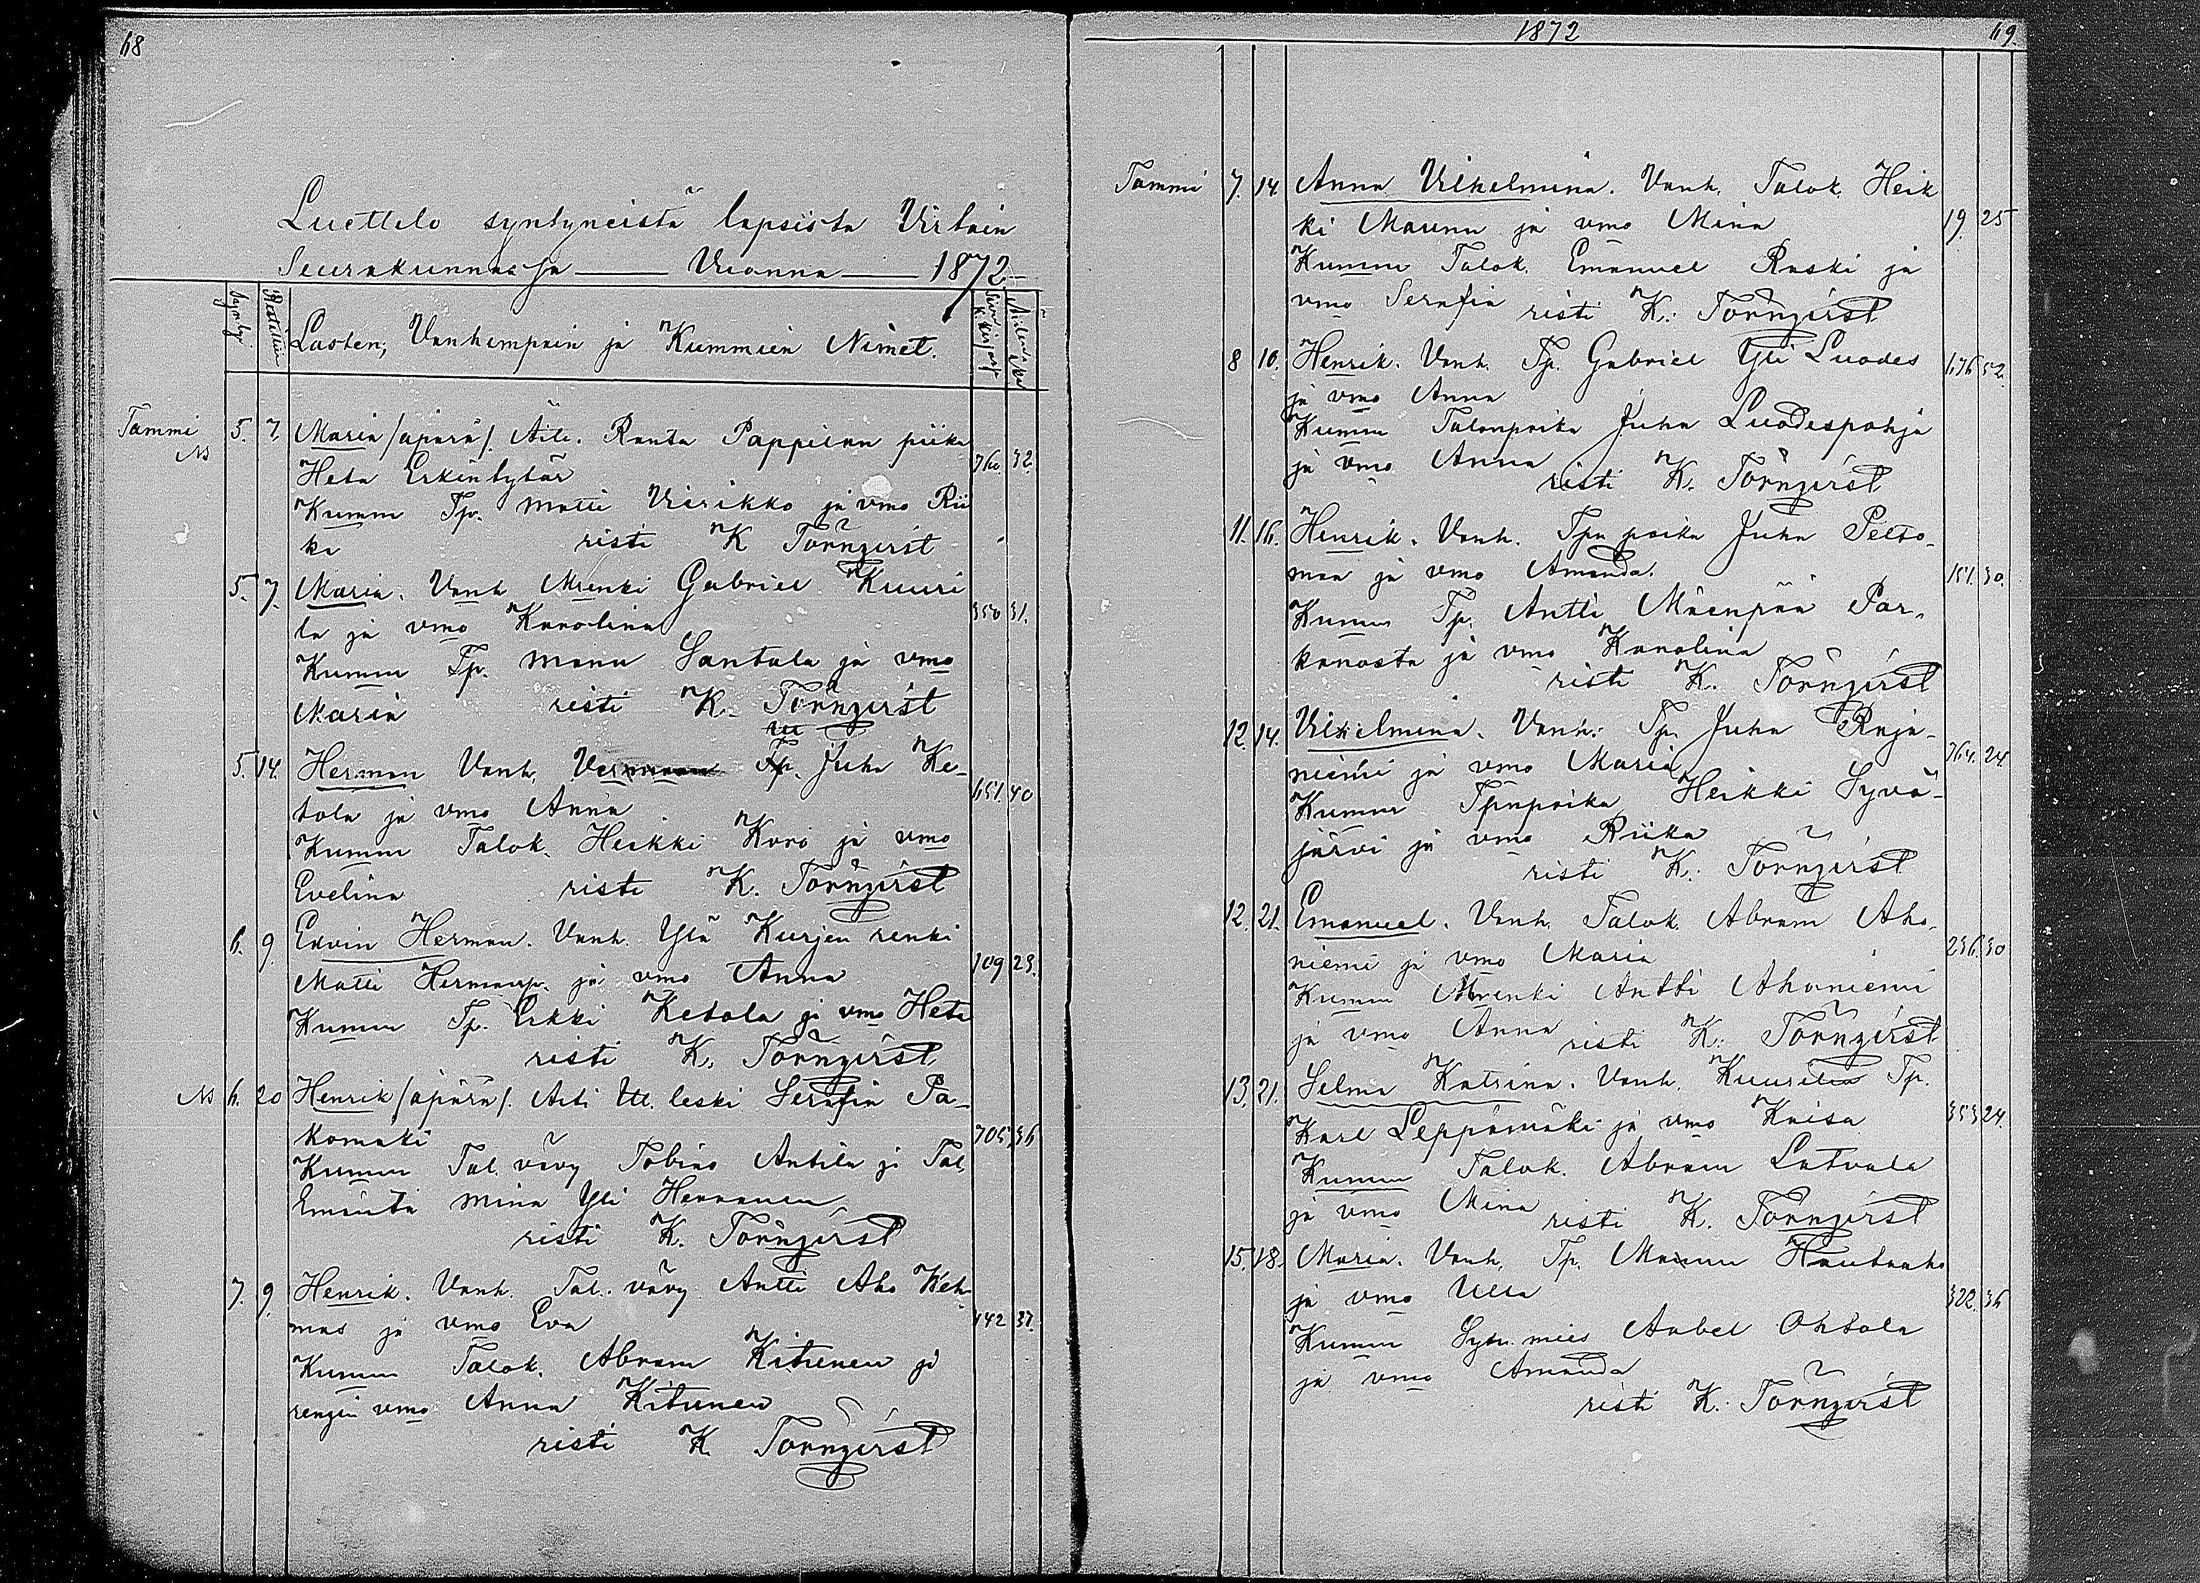 68
Luettelo syntyneistä lapsista Virtain
Seurakunnassa Vuonna 1872
Synty. Ristittiin Lasten, Vanhempain ja Kummien Nimet.
Tammi 5. 7. Maria /äpärä/. Äiti. Ranta Pappilan piika 760. 32.
Ns Heta Erkintytär
Kumm Tp. Matti Vierikko ja vmo Rii
ka risti K Törnqvist
5. 7. Maria. Vanh. Mrenki Gabriel Kuuri 350 31.
la ja vmo Karolina
Kumm Tp. Manu Santala ja vmo
Maria risti K. Törnqvist
5. 14. Herman Vanh. Tp. Juha Ke- 651. 40
tola ja vmo Anna
Kumm Talok. Heikki Koro ja vmo
Evelina risti K. Törnqvist
6. 9. Edvin Herman. Vanh. Ylä Kurjen renki 109 23.
Matti Hermanp. ja vmo Anna
Kumm Tp. Erkki Ketola ja vmo Heta
risti K. Törnqvist
Ns 6. 20 Henrik /äpärä/. Äiti Itl. leski Serafia Pa- 705. 36
komäki
Kumm Tal. vävy Tobias Antila ja Tal.
Emäntä Mina Yli Herranen
risti K. Törnqvist
7. 9. Henrik. Vanh. Tal. vävy Antti Aho Keh- 142 37.
mas ja vmo Eva
Kumm Talok. Abram Kitunen ja
rengin vmo Anna Kitunen
risti K Törnqvist
1872 69.
Tammi 7. 14. Anna Vilhelmina. Vanh. Talok. Heik 19. 25
ki Maunu ja vmo Mina
Kumm Talok. Emanuel Raski ja
vmo Serafia risti K. Törnqvist
8 10. Henrik. Vanh. Tp. Gabriel Yli Luodes 676 52.
ja vmo Anna
Kumm Talonpoika Juha Luodespohja
ja vmo Anna risti K. Törnqvist
11. 16. Henrik. Vanh. Tpn poika Juha Pelto- 151. 30.
maa ja vmo Amanda.
Kumm Tp. Antti Mäenpää Par-
kanosta ja vmo Karolina
risti K. Törnqvist
12. 14. Vilhelmina. Vanh. Tp. Juha Raja- 764. 24
niemi ja vmo Maria
Kumm Tpnpoika Heikki Syvä-
järvi ja vmo Riika
risti K. Törnqvist
12. 21. Emanuel. Vanh. Talok. Abram Aho- 236. 30
niemi ja vmo Maria
Kumm Mrenki Antti Ahoniemi
ja vmo Anna risti K. Törnqvist
13. 21. Selma Katrina. Vanh. Kuurila Tp. 353 24.
Karl Leppämäki ja vmo Kaisa
Kumm Talok. Abram Latvala
ja vmo Mina risti K. Törnqvist
15. 18. Maria. Vanh. Tp. Maunu Hautaaho 322. 36
ja vmo Ulla
Kumm Syt. mies Aabel Ohtola
ja vmo Amanda
risti K. Törnqvist